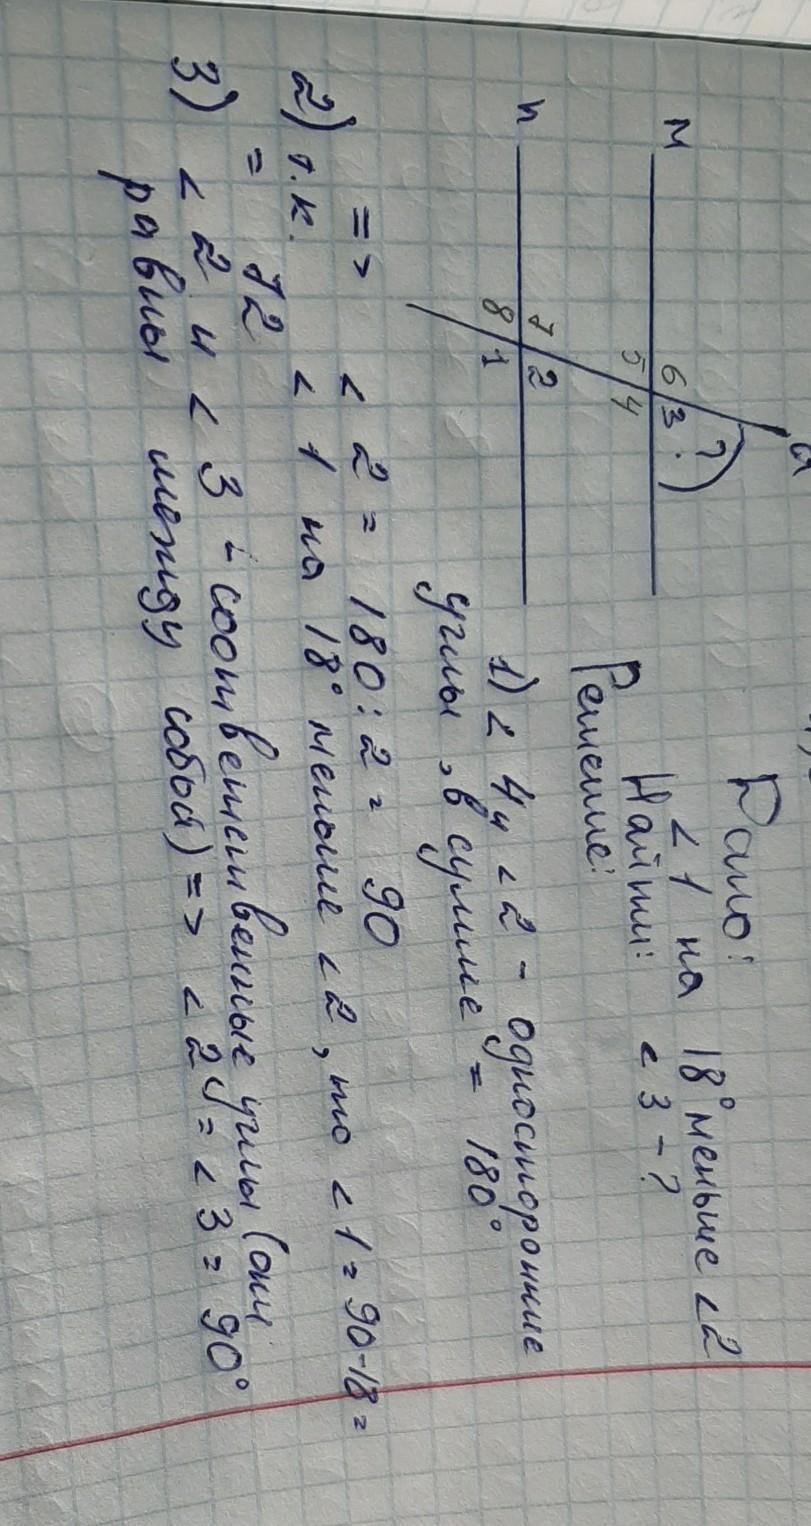 Дано:
< 1 на 18° меньше < 2
Найти: < 3 - ?
Решение:
a
м
6 3 ?
5 4
n
7 2
8 1
1) < 4 и < 2 - односторонние
углы, в сумме = 180°
=> < 2 = 180 : 2 = 90
2) т.к. < 1 на 18° меньше < 2, то < 1 = 90-18 =
= 72
3) < 2 и < 3 - соответственные углы (они
равны между собой) => < 2 = < 3 = 90°